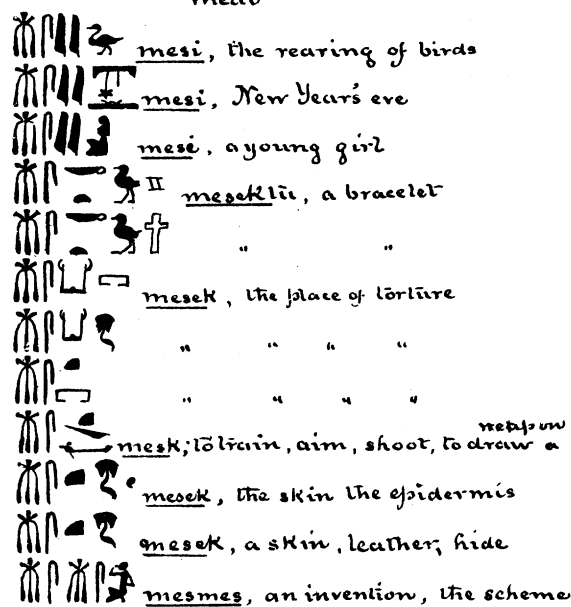 mesi, the rearing of birds
mesi, New Year's eve
mesi, a young girl
mesektu, a bracelet
" "
mesek, the place of torture
" " " "
" " " "
weapon
mesk, to train, aim, shoot, to draw a
mesek, the skin the epidermis
mesek, a skin, leather, hide
mesmes, an invention, the scheme